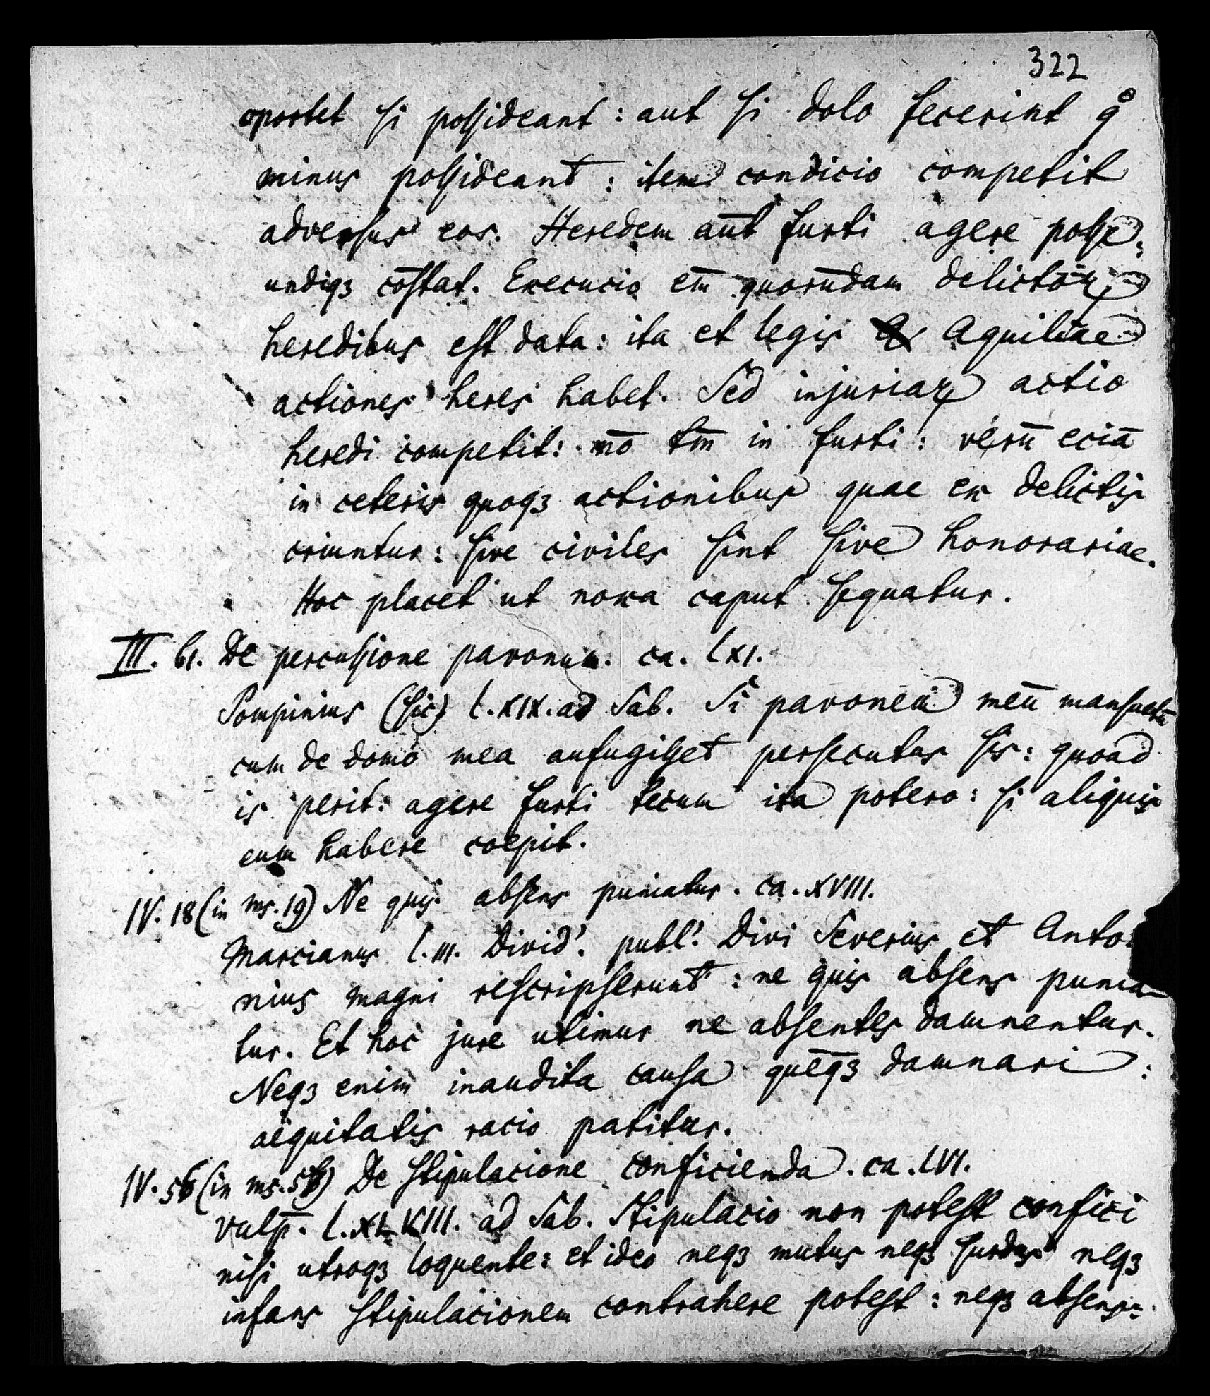 322
oportet si possideant : aut si dolo fecerint qͦ
minus possideant : item condicio competit
adversus eos. Heredem aut̄ furti agere posse:
undiqꝫ cōstat. Execucio em̄ quorūdam delictoꝝ
heredibus est data: ita et legis Aquiliae
actiones heres habet. Sed injuriaꝝ actio
heredi competit: nō tm̄ in furti : verū eciā
in ceteris quoqꝫ actionibus quae ex delictis
oriuntur : sive civiles sint sive honorariae.
Hoc placet ut noxa caput sequatur.
III. 61. De percussione pavonum. ca. LXI.
Pompinius (sic) l. XIX. ad Sab. Si pavonem meū mansuetū
cum de domo mea aufugisset persecutus sis : quoad
is perit: agere furti tecum ita potero : si aliquis
eum habere coepit.
IV. 18 (in ms. 19) Ne quis absens puniatur. ca. XVIII.
Marcianus l. III. Divid' publ' Divi Severius et Anto:
nius magni rescripserunt : ne quis absens punia-
tur. Et hoc jure utimur ne absentes damnentur.
Neqꝫ enim inaudita causa quēqꝫ damnari :
aequitatis racio patitur.
IV. 56 (in ms. 57) De stipulacione conficienda. ca. LVI.
Vulp̄. l. XLVIII. ad Sab. Stipulacio non potest confici
nisi utroqꝫ loquente: et ideo neqꝫ mutus neqꝫ surdus neqꝫ
infans stipulacionem contrahere potest : neqꝫ absens: